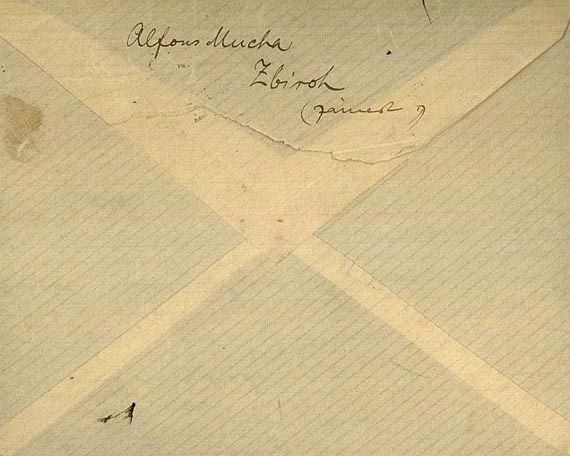 Alfons Mucha
Zbiroh
(zámek)